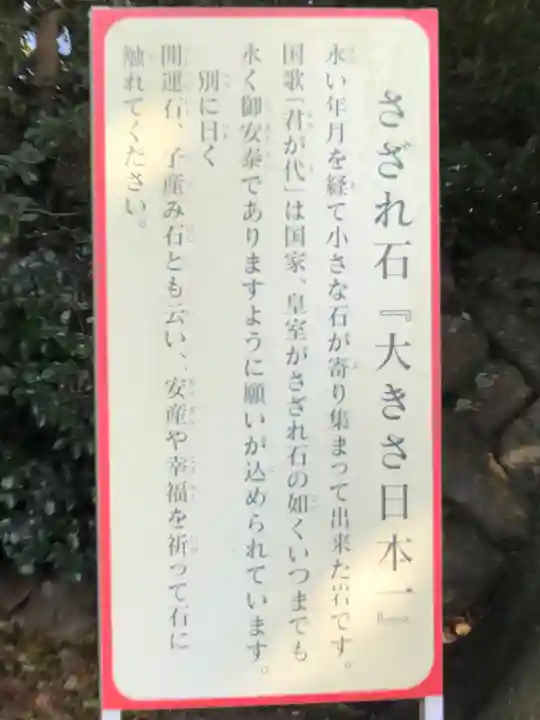 さざれ石『大きさ日本一』
永い年月を経て小さな石が寄り集まって出来た岩です。
国歌「君が代」は国家、皇室がさざれ石の如くいつまでも
永く御安泰でありますように願いが込められています。
別に曰く
開運石、子産み石とも云い、安産や幸福を祈って石に
触れてください。